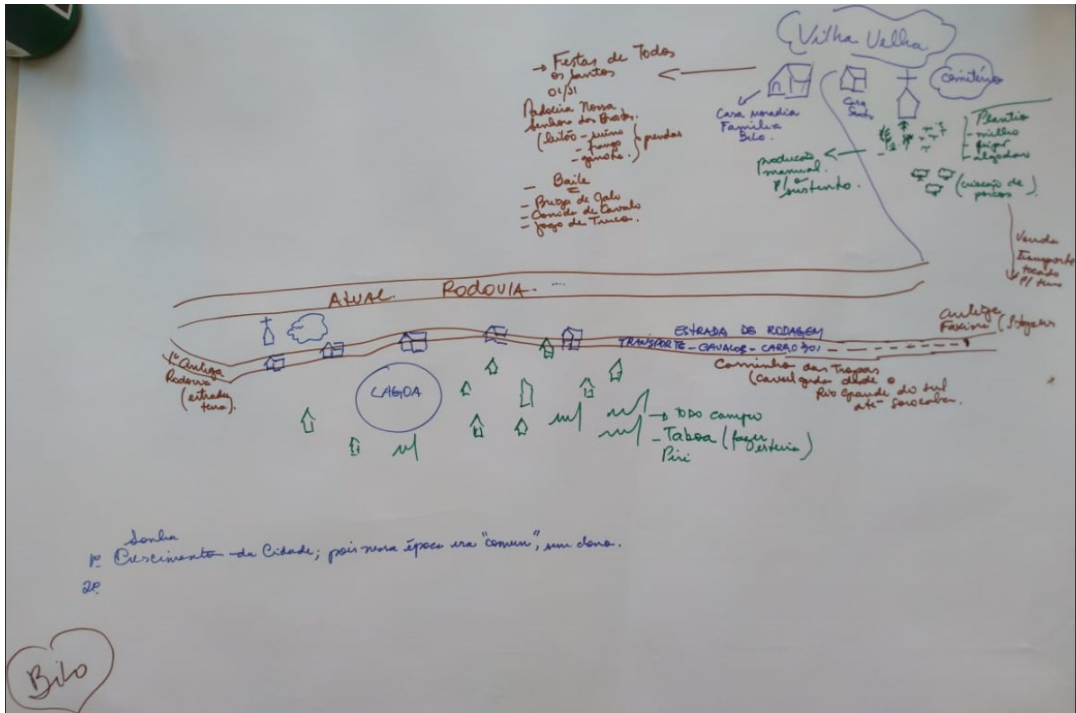 Vilha Velha
Cemitério
→ Festas de Todos
os Santos
01/01
Padoeira Nossa
Senhora dos
(leitão -
- frango
- ganche.) prendas
- Baile
- Briga de Galo
- Corrida de Cavalo
- Jogo de Truco.
Casa moradia
Família
Bilo.
Casa
Santo
Plantio
- milho
- feijão
- algodão
produção
manual.
P/ o
sustento.
(criação de
porcos)
Venda
Transporte
tocado
P/ terra
ATUAL RODOVIA...
ESTRADA DE RODAGEM
TRANSPORTE - CAVALOS - CARGO
antiga
Faxina
1ª Antiga
Rodovia
(estrada
terra).
Caminho das Tropas
(cavalgada desde o
Rio Grande do Sul
até Sorocaba.
LAGOA
→ TODO campo
- Taboa (fazer
esteira)
Piri
Sonho
1º Crescimento da Cidade; pois nessa época era "comum", um dono.
2º
Bilo